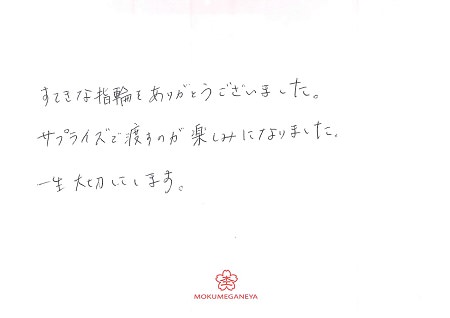 すてきな指輪をありがとうございました。
サプライズで渡すのが楽しみになりました。
一生大切にします。
MOKUMEGANEYA